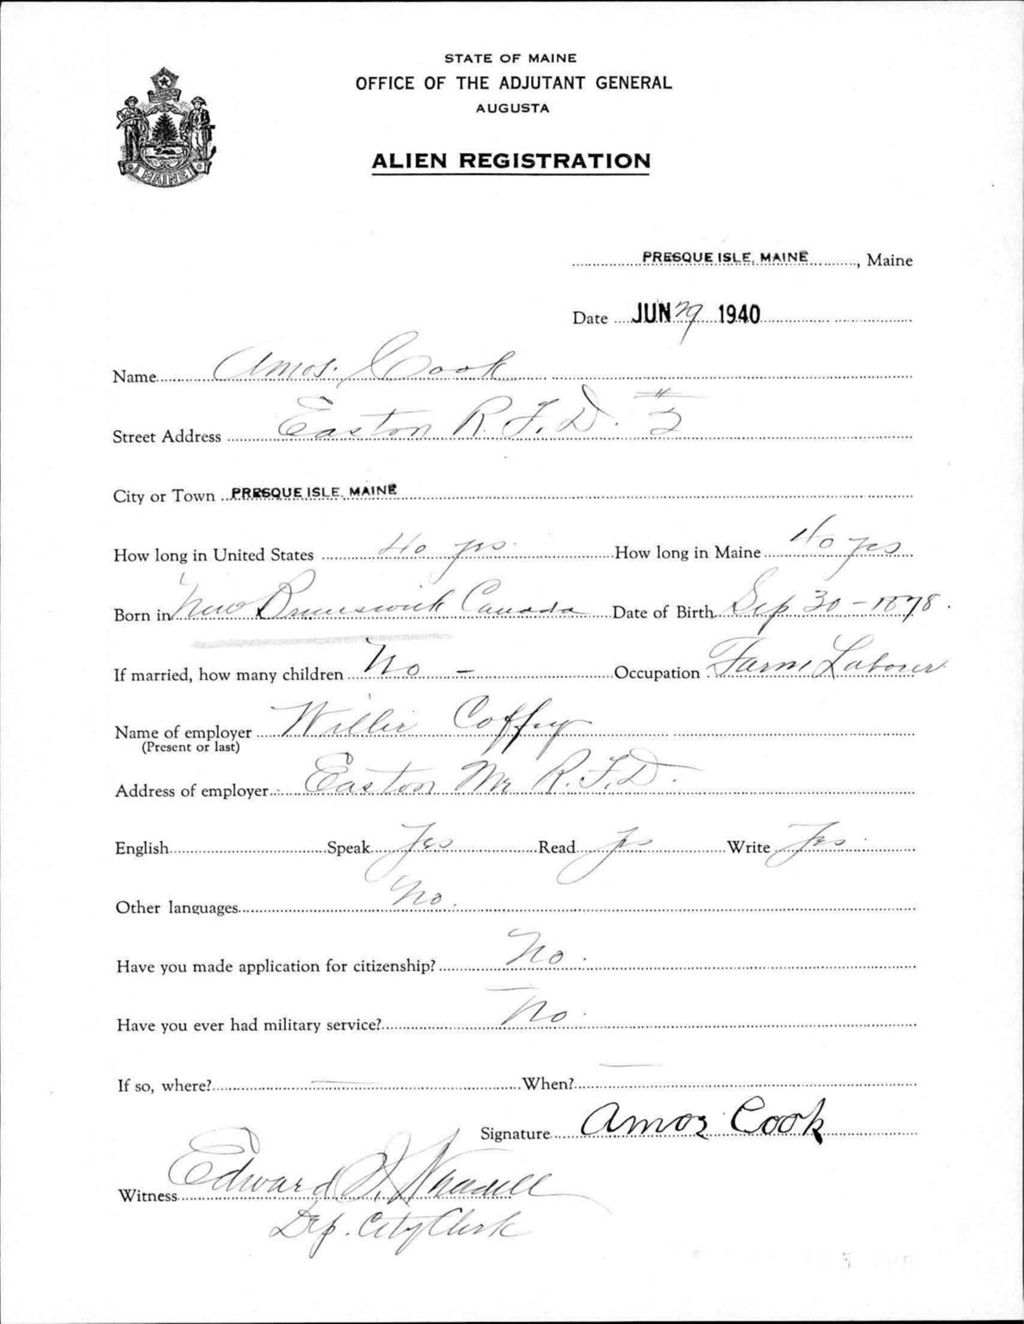 STATE OF MAINE
OFFICE OF THE ADJUTANT GENERAL
AUGUSTA
ALIEN REGISTRATION
MAINE
PRESQUE ISLE, MAINE, Maine
Date JUN 29 1940
Name Amos. Cook
Street Address Easton R.F.D. #2
City or Town PRESQUE ISLE, MAINE
How long in United States 40 yrs. How long in Maine 40 yrs
Born in New Brunswick Canada Date of Birth Sep 30-1878.
If married, how many children No - Occupation Farm Laborer
Name of employer Willie Coffey
(Present or last)
Address of employer Easton Me R.F.D.
English Speak Yes Read Yes Write Yes.
Other languages No.
Have you made application for citizenship? No.
Have you ever had military service? No.
If so, where? — When? —
Signature Amos Cook
Witness Edward
Dep. City Clerk